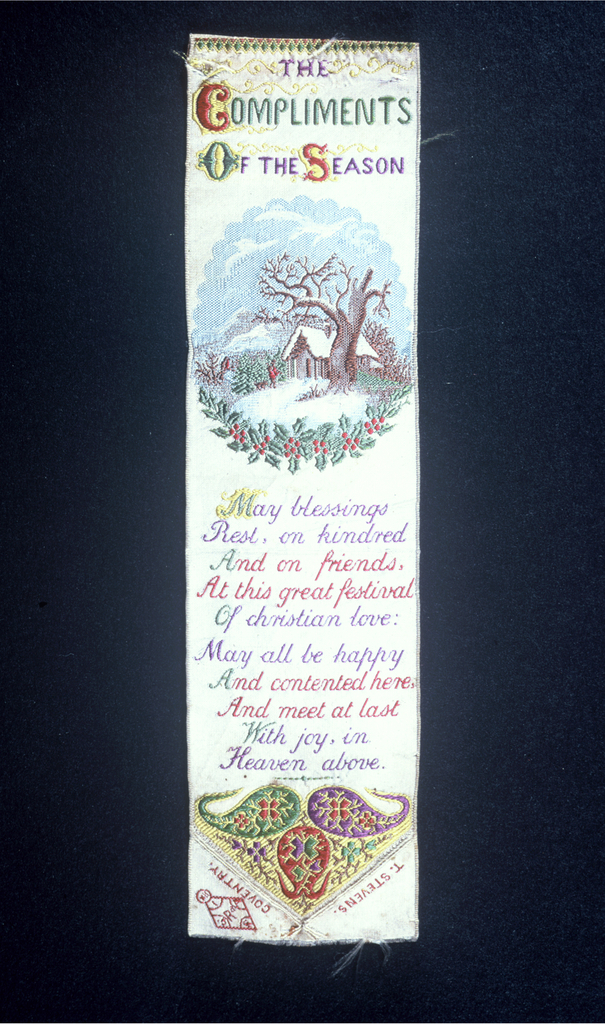 THE
COMPLIMENTS
OF THE SEASON
May blessings
Rest, on kindred
And on friends,
At this great festival
Of christian love:
May all be happy
And contented here,
And meet at last
With joy, in
Heaven above.
T. STEVENS.
COVENTRY.